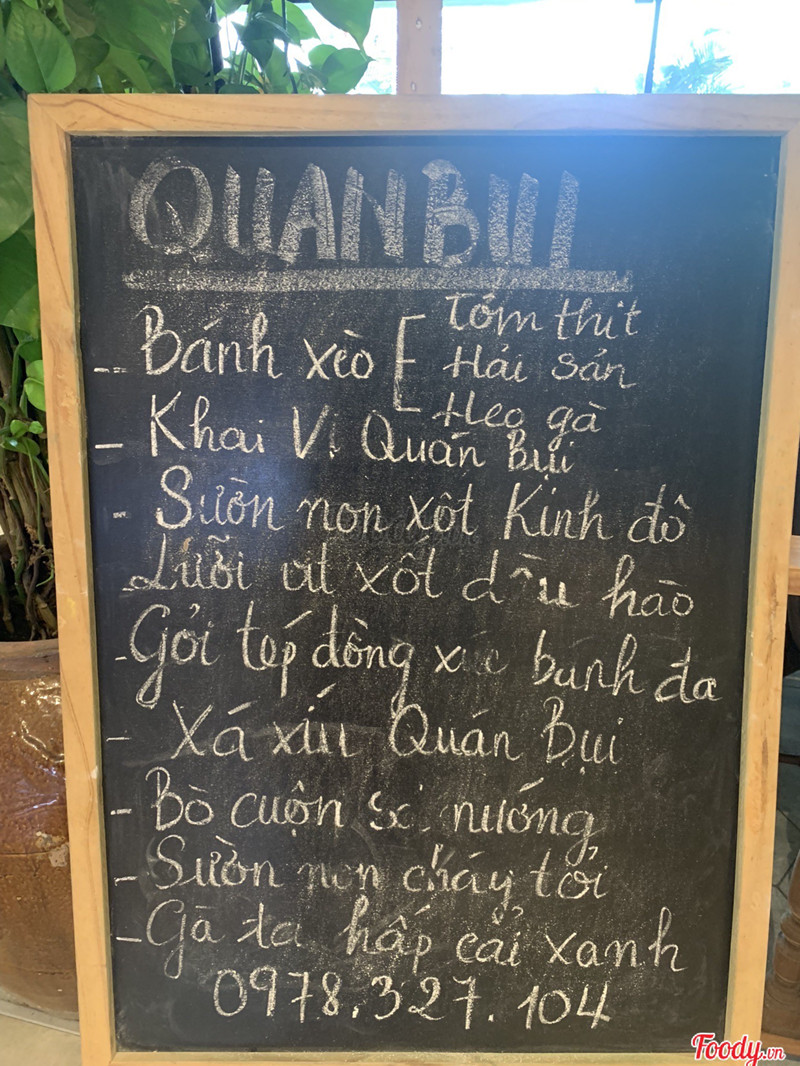 QUAN BUI
- Bánh xèo [ Tôm thịt
Hải sản
Heo gà
- Khai Vị Quán Bụi
- Sườn non xốt Kinh đô
- Lưỡi vịt xốt dầu hào
- Gỏi tép đồng xúc bánh đa
- Xá xíu Quán Bụi
- Bò cuộn nướng
- Sườn non cháy tỏi
- Gà ta hấp cải xanh
0978.327.104
Foody.vn